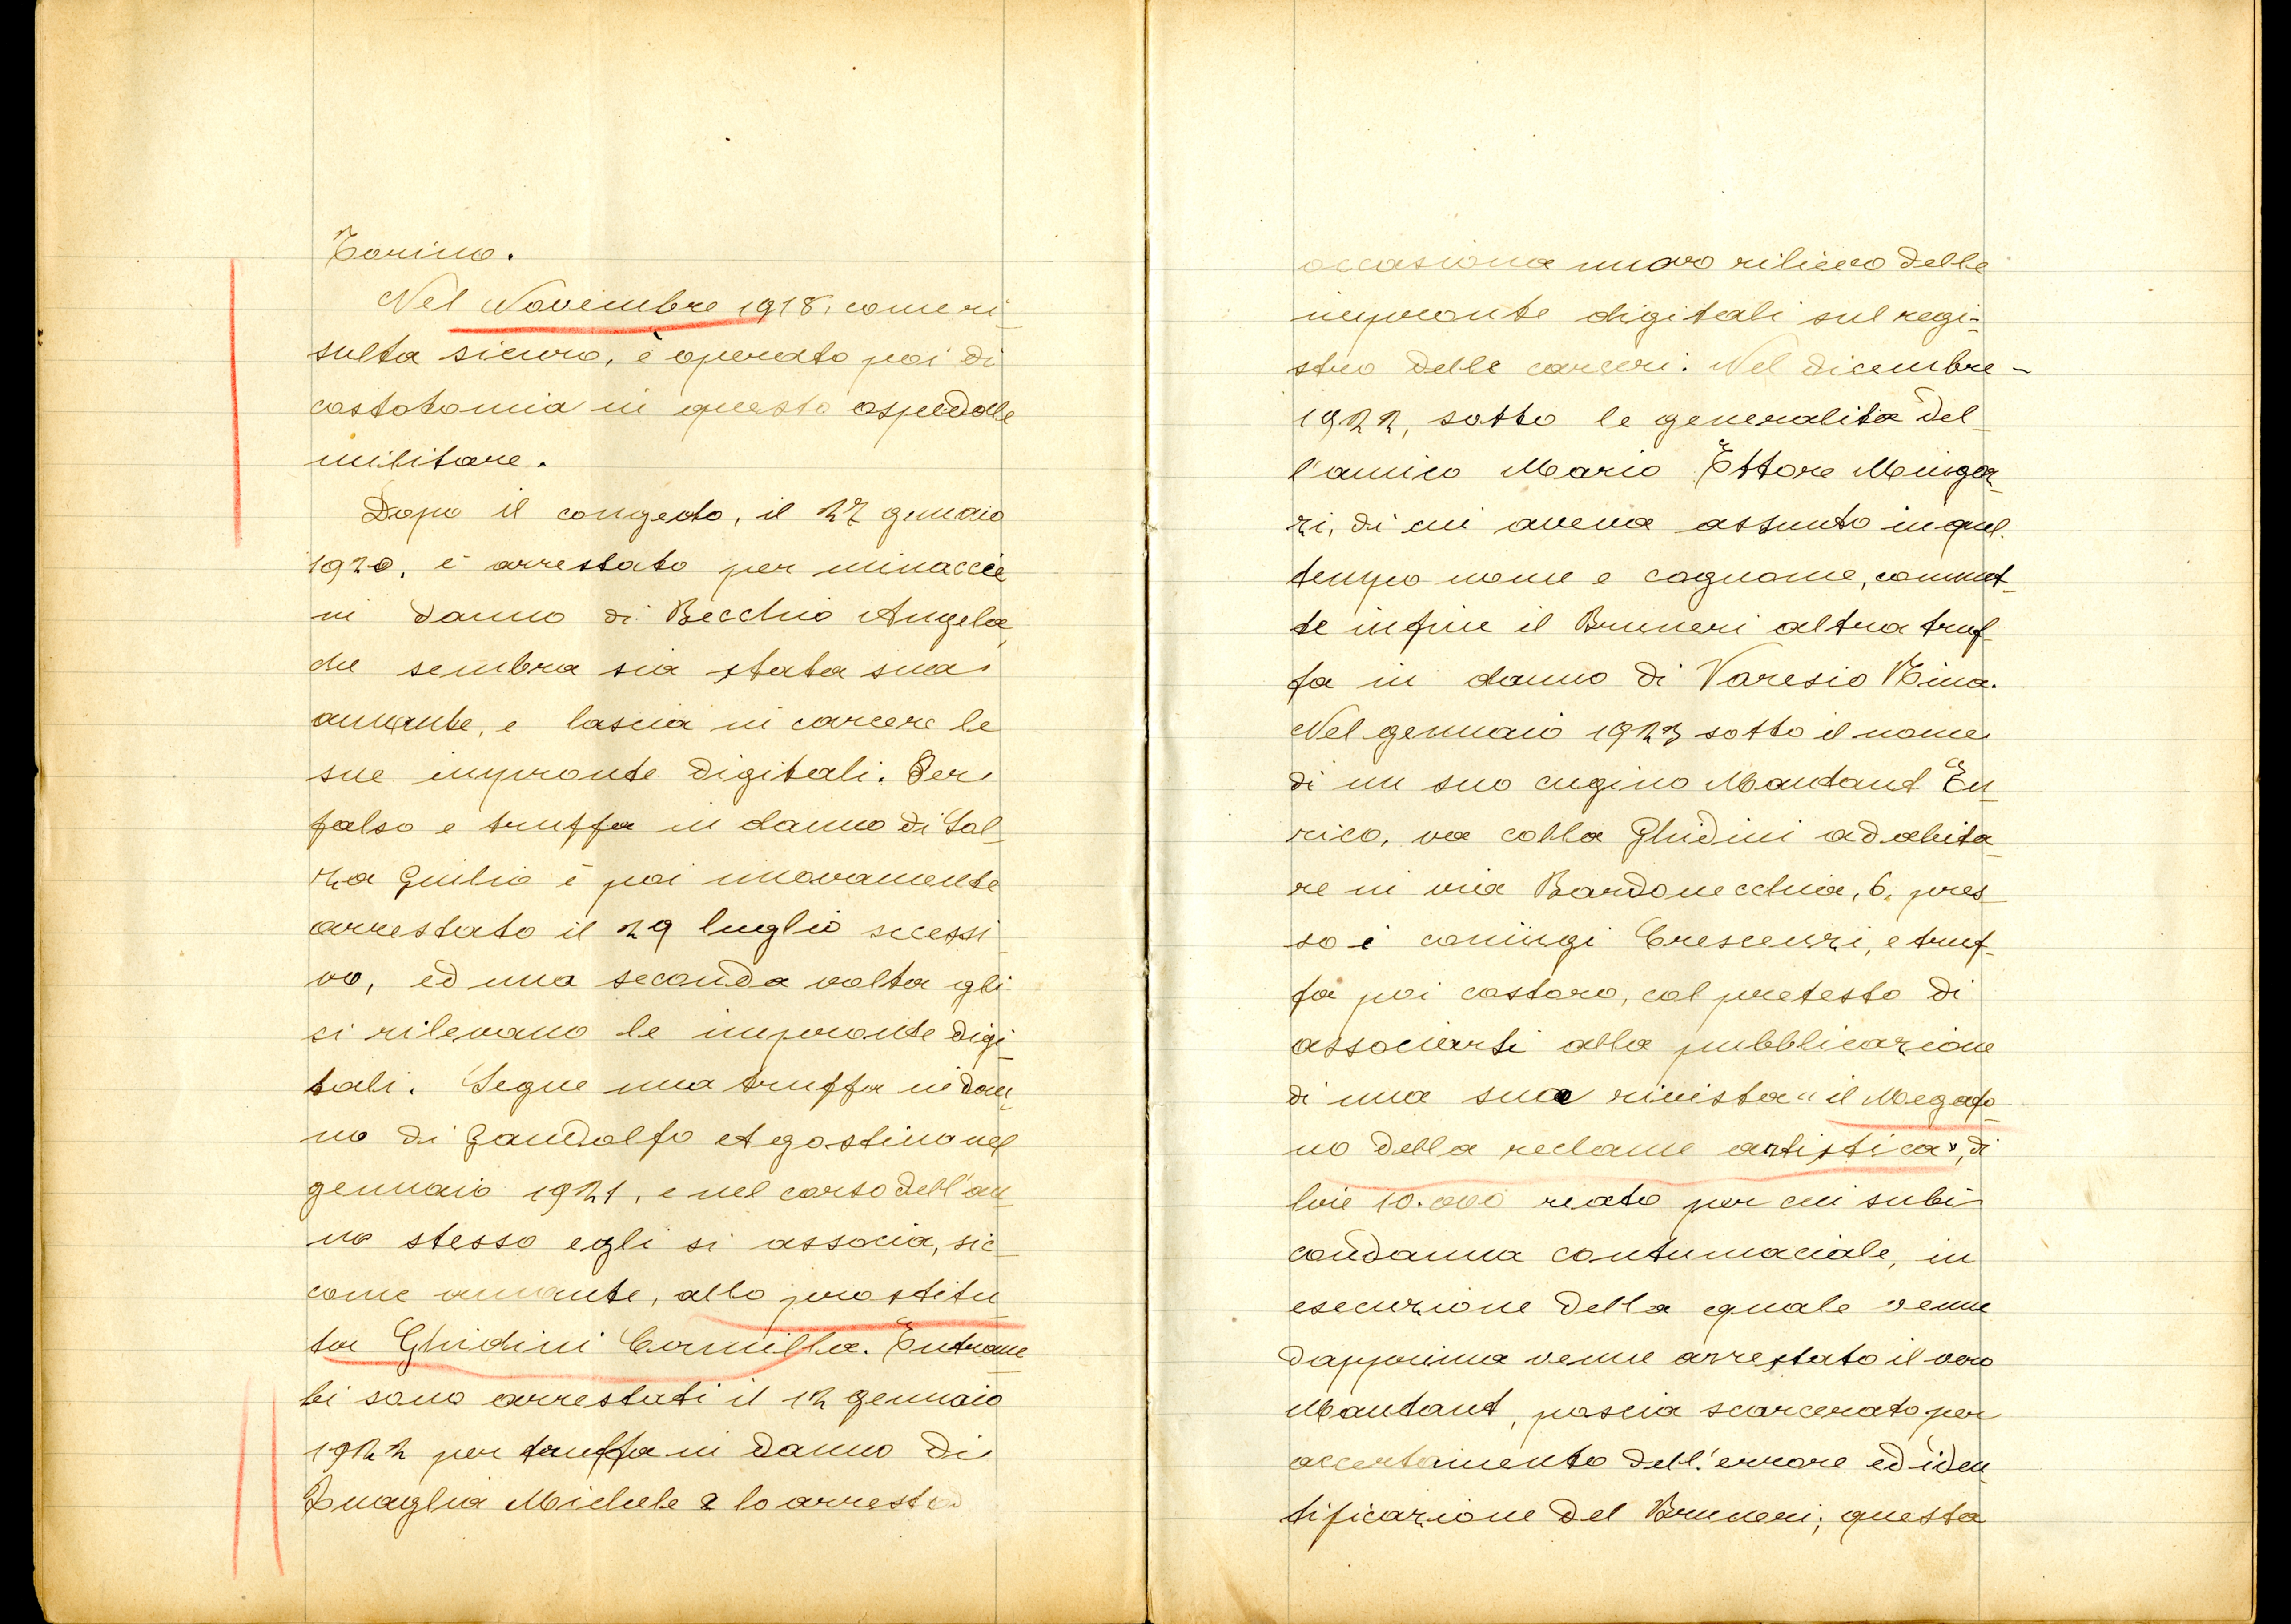 Torino.
Nel Novembre 1918, come ri-
sulta sicuro, è operato poi di
costotomia in questo ospedale
militare.
Dopo il congedo, il 27 gennaio
1920, è arrestato per minaccie
in danno di Becchio Angela,
che sembra sia stata sua
amante, e lascia in carcere le
sue impronte digitali. Per
falso e truffa in danno di Sal-
za Giulio è poi nuovamente
arrestato il 29 luglio sucessi
vo, ed una seconda volta gli
si rilevano le impronte digi-
tali. Segue una truffa in dan-
no di Gandolfo Agostino nel
gennaio 1921, e nel corso dell'an-
no stesso egli si associa, sic-
come amante, allo prostitu-
ta Ghidini Camilla. Entram
bi sono arrestati il 12 gennaio
1922 per truffa in danno di
Quaglia Michele e lo arresto
occasiona nuovo rilievo delle
impronte digitali sul regi-
stro delle carceri. Nel dicembre -
1922, sotto le generalità del
l'amico Mario Ettore Mingar-
ri, di cui aveva assunto in quel
tempo nome e cognome, commet-
te infine il Bruneri altra truf-
fa in danno di Varesio Nina.
Nel gennaio 1923 sotto il nome
di un suo cugino Mautant En-
rico, va colla Ghidini ad abita-
re in via Bardonecchia, 6, pres-
so i coniugi Crescenzi, e truf-
fa poi costoro, col pretesto di
associarsi alla pubblicazione
di una sua rivista "il Megafo-
no della reclame artistica", di
lire 10.000 reato per cui subì
condanna contumaciale, in
esecuzione della quale venne
dapprima venne arrestato il vero
Mautant, poscia scarcerato per
accertamento dell'errore ed iden-
tificazione del Bruneri; questa